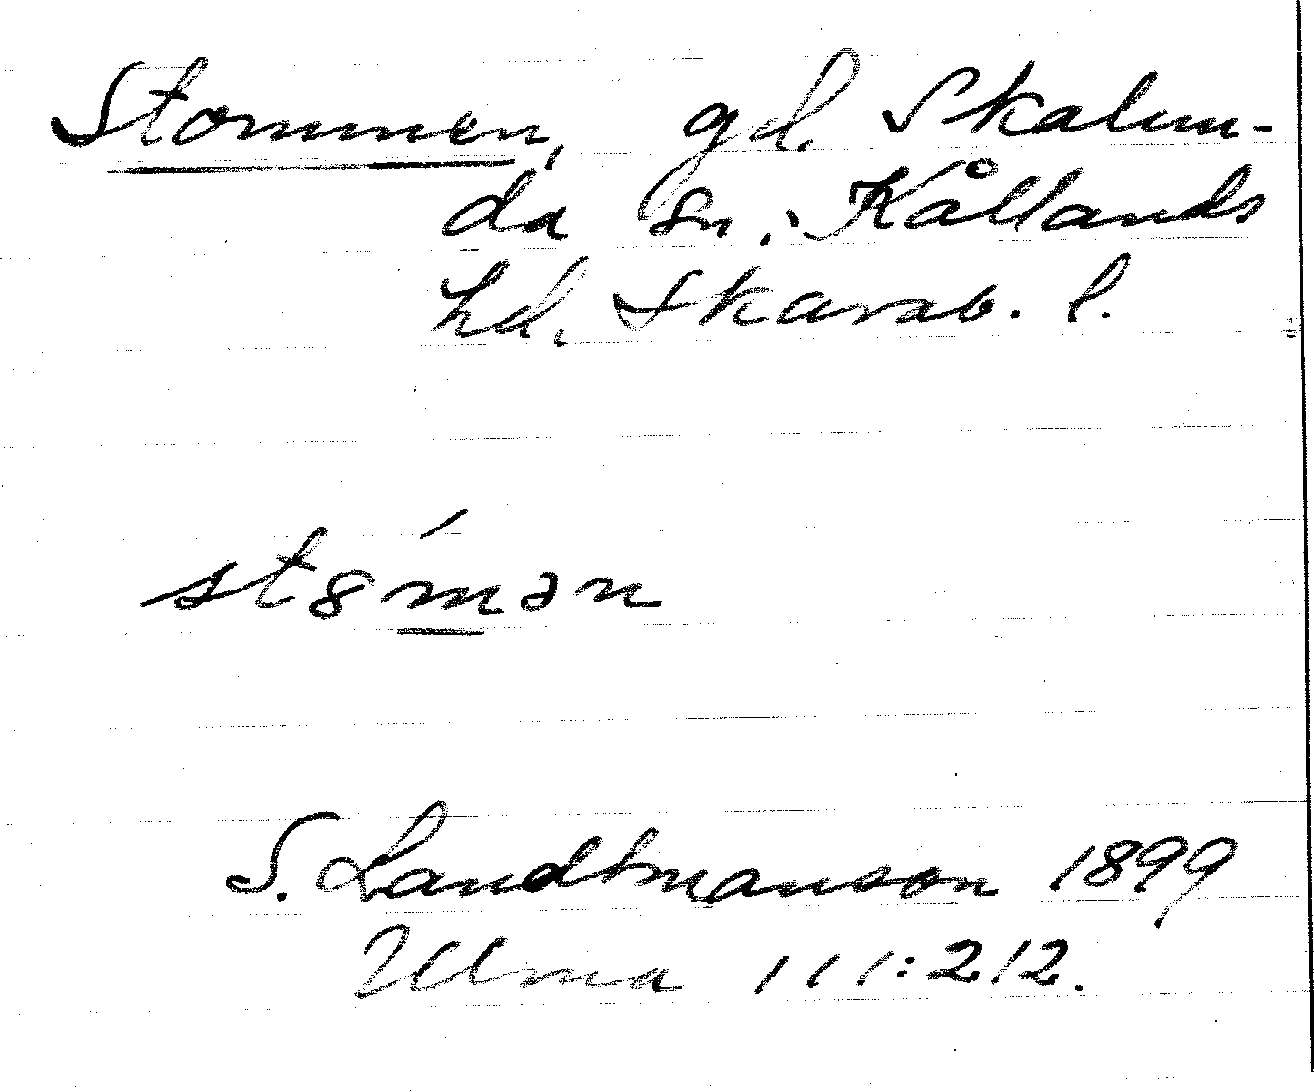 Stommen, gd. Skalun-
da sn., Kållands
hd. Skarab. l.
st8́mən
S. Landtmanson 1899
Ulma 111:212.